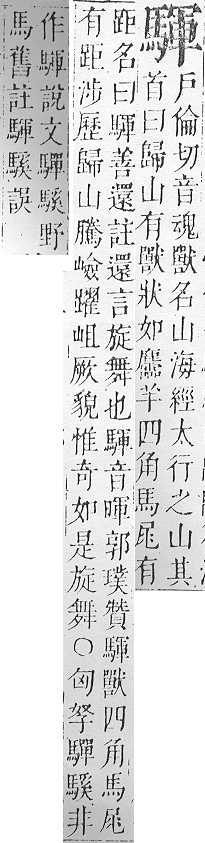 䮝
戶倫切音魂獸名山海經太行之山其
首曰歸山有獸狀如麢羊四角馬尾有
距名曰䮝善還註還言旋舞也䮝音暉郭璞贊䮝獸四角馬尾
有距涉歷歸山騰嶮躍岨厥貌惟奇如是旋舞○匈孥驒騱非
作䮝說文驒騱野
馬舊註䮝騱誤